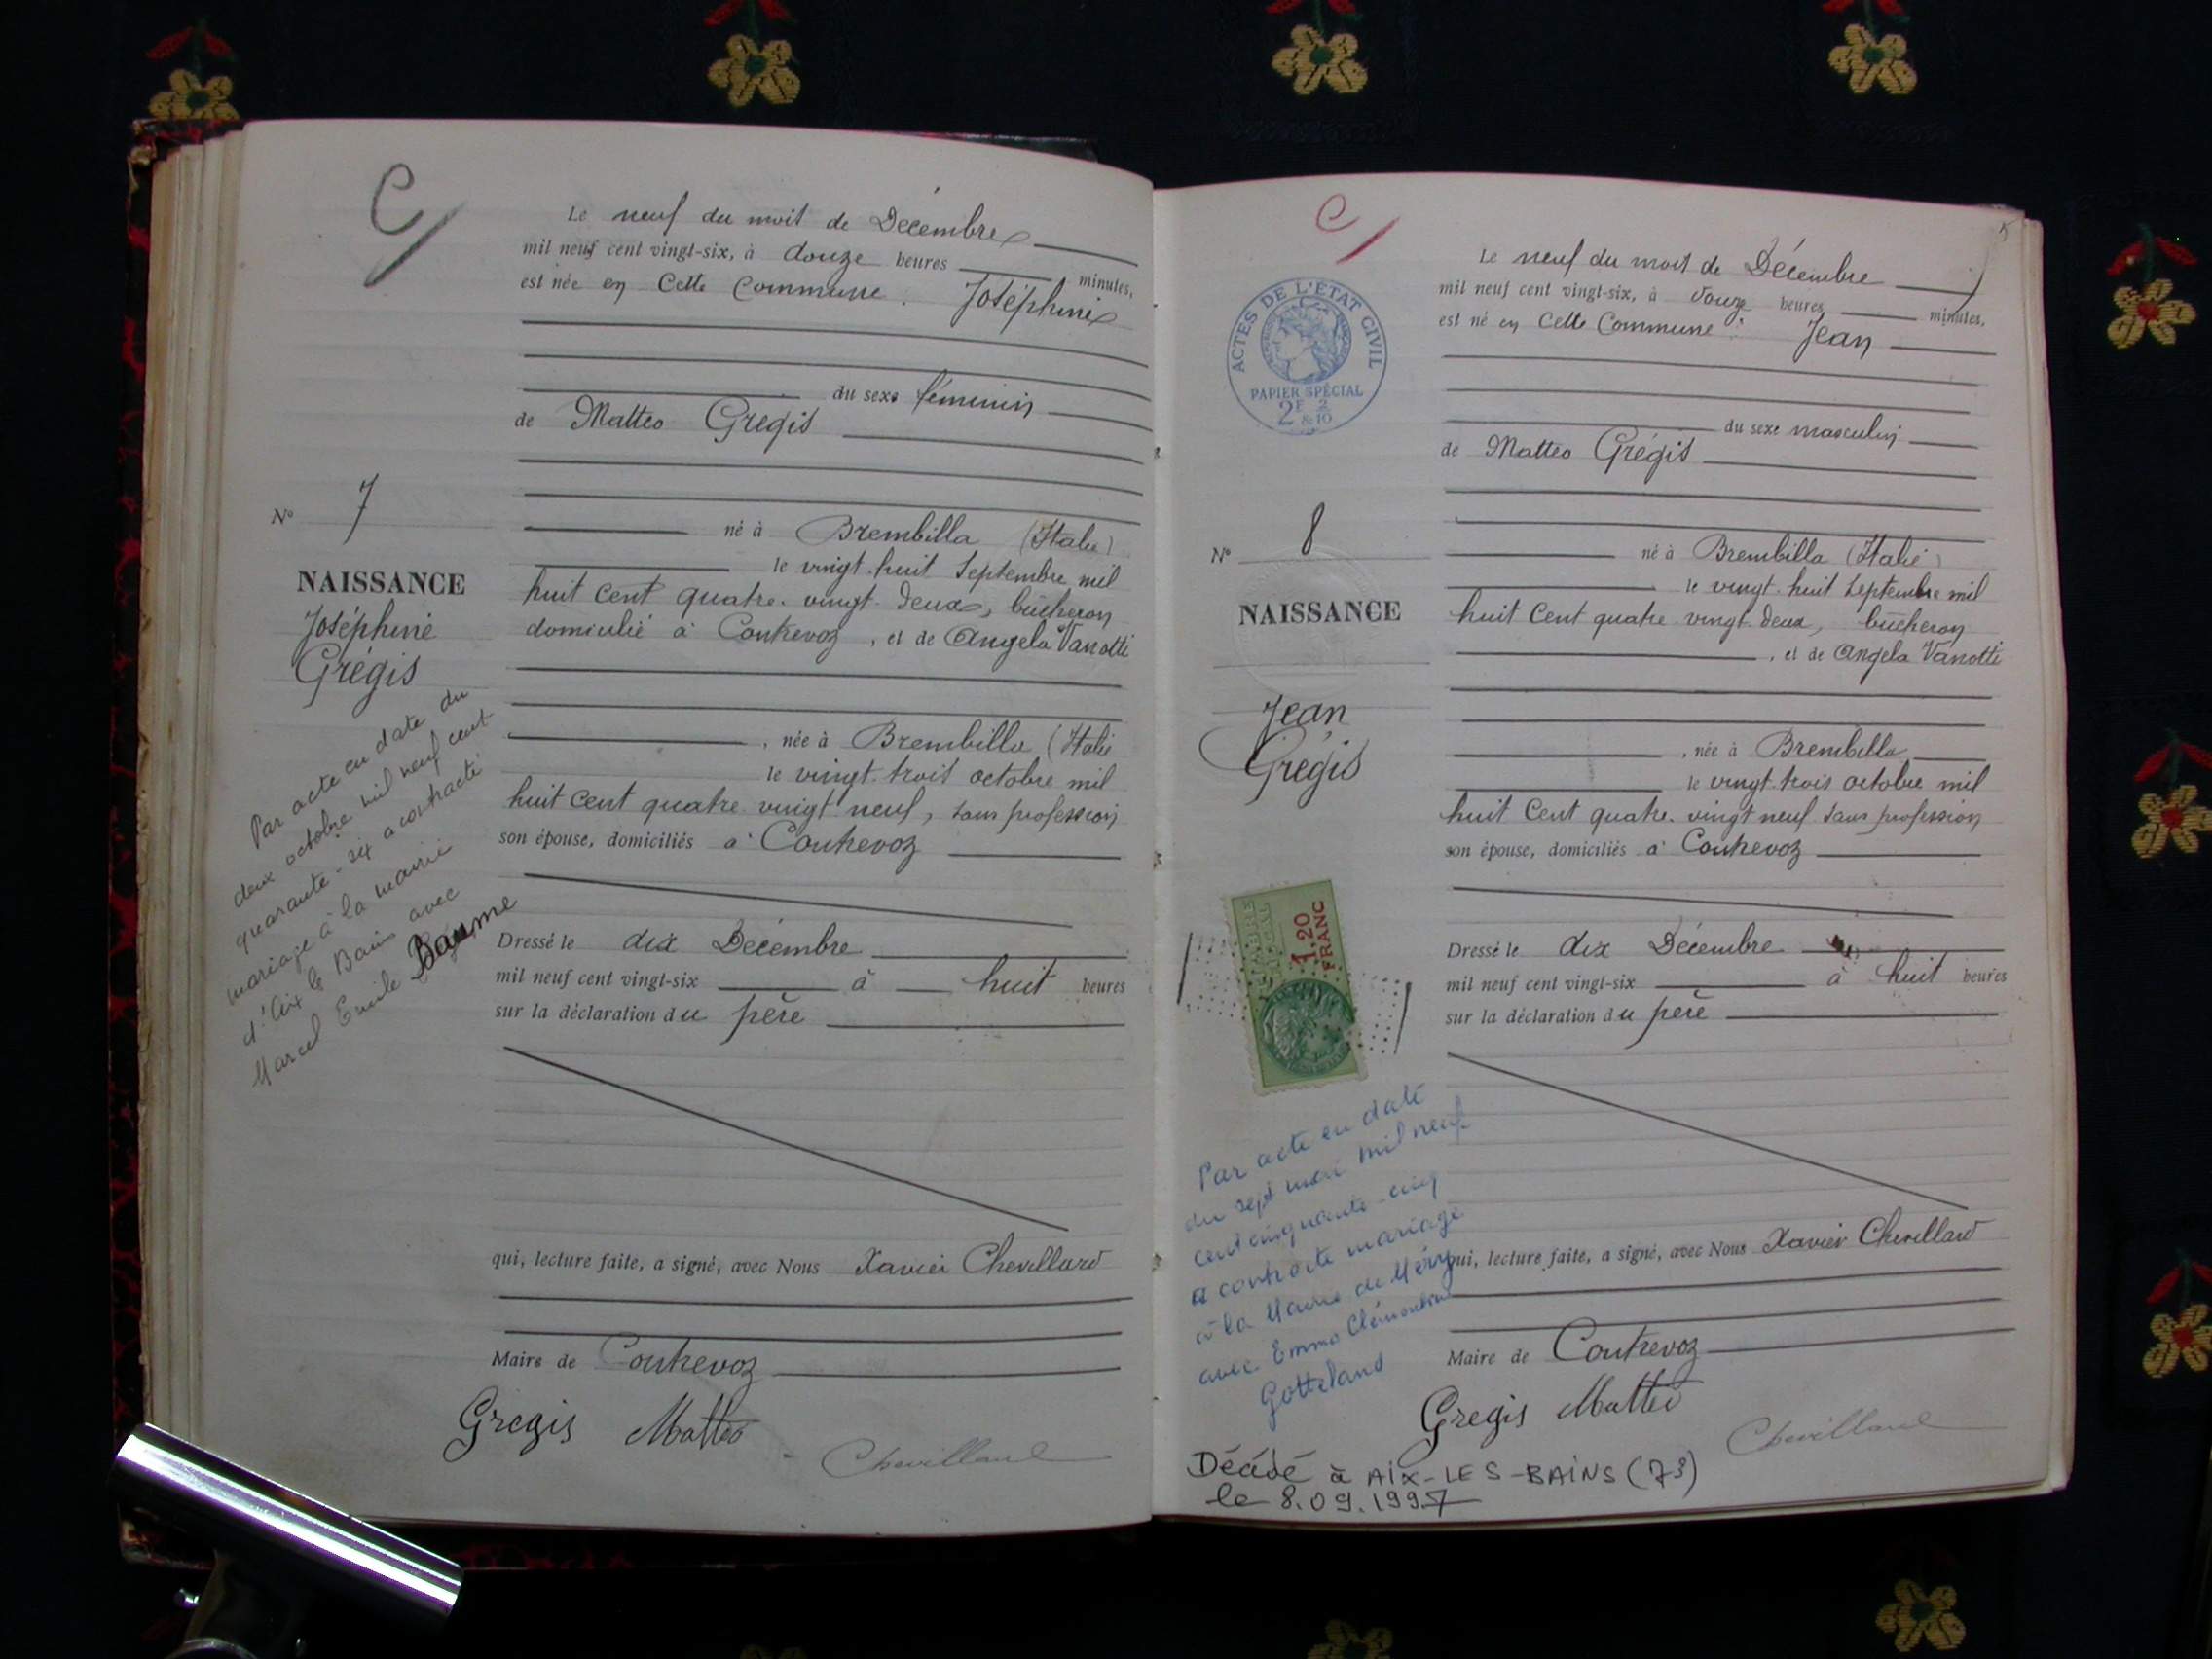 C/
Le neuf du mois de Décembre
mil neuf cent vingt-six, à douze heures minutes,
est née en cette commune : Joséphine
du sexe féminin
de Matteo Gregis
né à Brembilla (Italie)
le vingt-huit Septembre mil
huit cent quatre-vingt-deux, bûcheron
domicilié à Contrevoz, et de Angela Vanotti
née à Brembilla (Italie
le vingt-trois octobre mil
huit cent quatre-vingt neuf, sans profession
son épouse, domiciliés à Contrevoz
Dressé le dix Décembre
mil neuf cent vingt-six à huit heures
sur la déclaration du père
qui, lecture faite, a signé, avec Nous Xavier Chevillard
Maire de Contrevoz
Gregis Matteo Chevillard
N° 7
NAISSANCE
Joséphine
Grégis
Par acte en date du
deux octobre mil neuf cent
quarante-six a contracté
mariage à la mairie
d'Aix le Bains avec
Marcel Emile Baume
C/
Le neuf du mois de Décembre
mil neuf cent vingt-six, à douze heures minutes,
est né en cette commune : Jean
du sexe masculin
de Matteo Grégis
né à Brembilla (Italie)
le vingt-huit Septembre mil
huit cent quatre-vingt-deux, bûcheron
, et de Angela Vanotti
, née à Brembilla
le vingt-trois octobre mil
huit cent quatre-vingt neuf sans profession
son épouse, domiciliés à Contrevoz
Dressé le dix Décembre
mil neuf cent vingt-six à huit heures
sur la déclaration du père
qui, lecture faite, a signé, avec Nous Xavier Chevillard
Maire de Contrevoz
Gregis Matteo Chevillard
ACTES DE L'ÉTAT CIVIL
PAPIER SPÉCIAL
2F & 2/10
N° 8
NAISSANCE
Jean
Grégis
1,20
FRANC
Par acte en date
du sept mai mil neuf
cent cinquante-cinq
a contracté mariage
à la Mairie de Méry
avec Emma Clémentine
Gotteland
Décédé à AIX-LES-BAINS (73)
le 8.09.1997